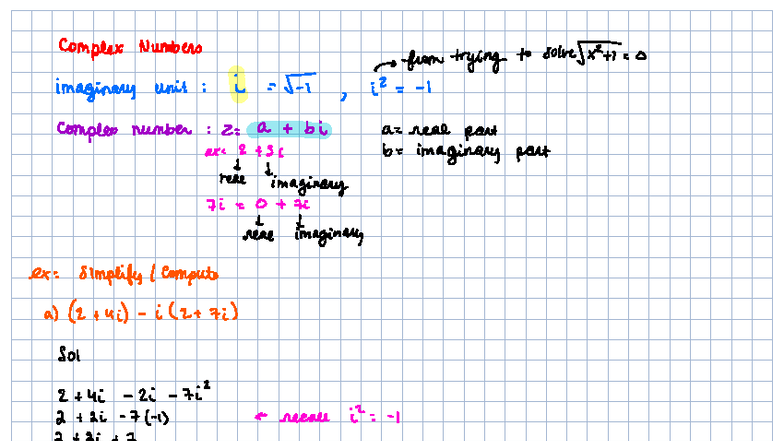 Complex Numbers
from trying to solve √x²+1 = 0
imaginary unit : i = √-1 , i² = -1
Complex number : z = a + bi
a = real part
b = imaginary part
ex = 2 + 3i
real
imaginary
7i = 0 + 7i
real imaginary
ex = Simplify / Compute
a) (2 + 4i) - i (2 + 7i)
Sol
2 + 4i - 2i - 7i²
2 + 2i - 7(-1) ← recall i² = -1
2 + 2i + 7